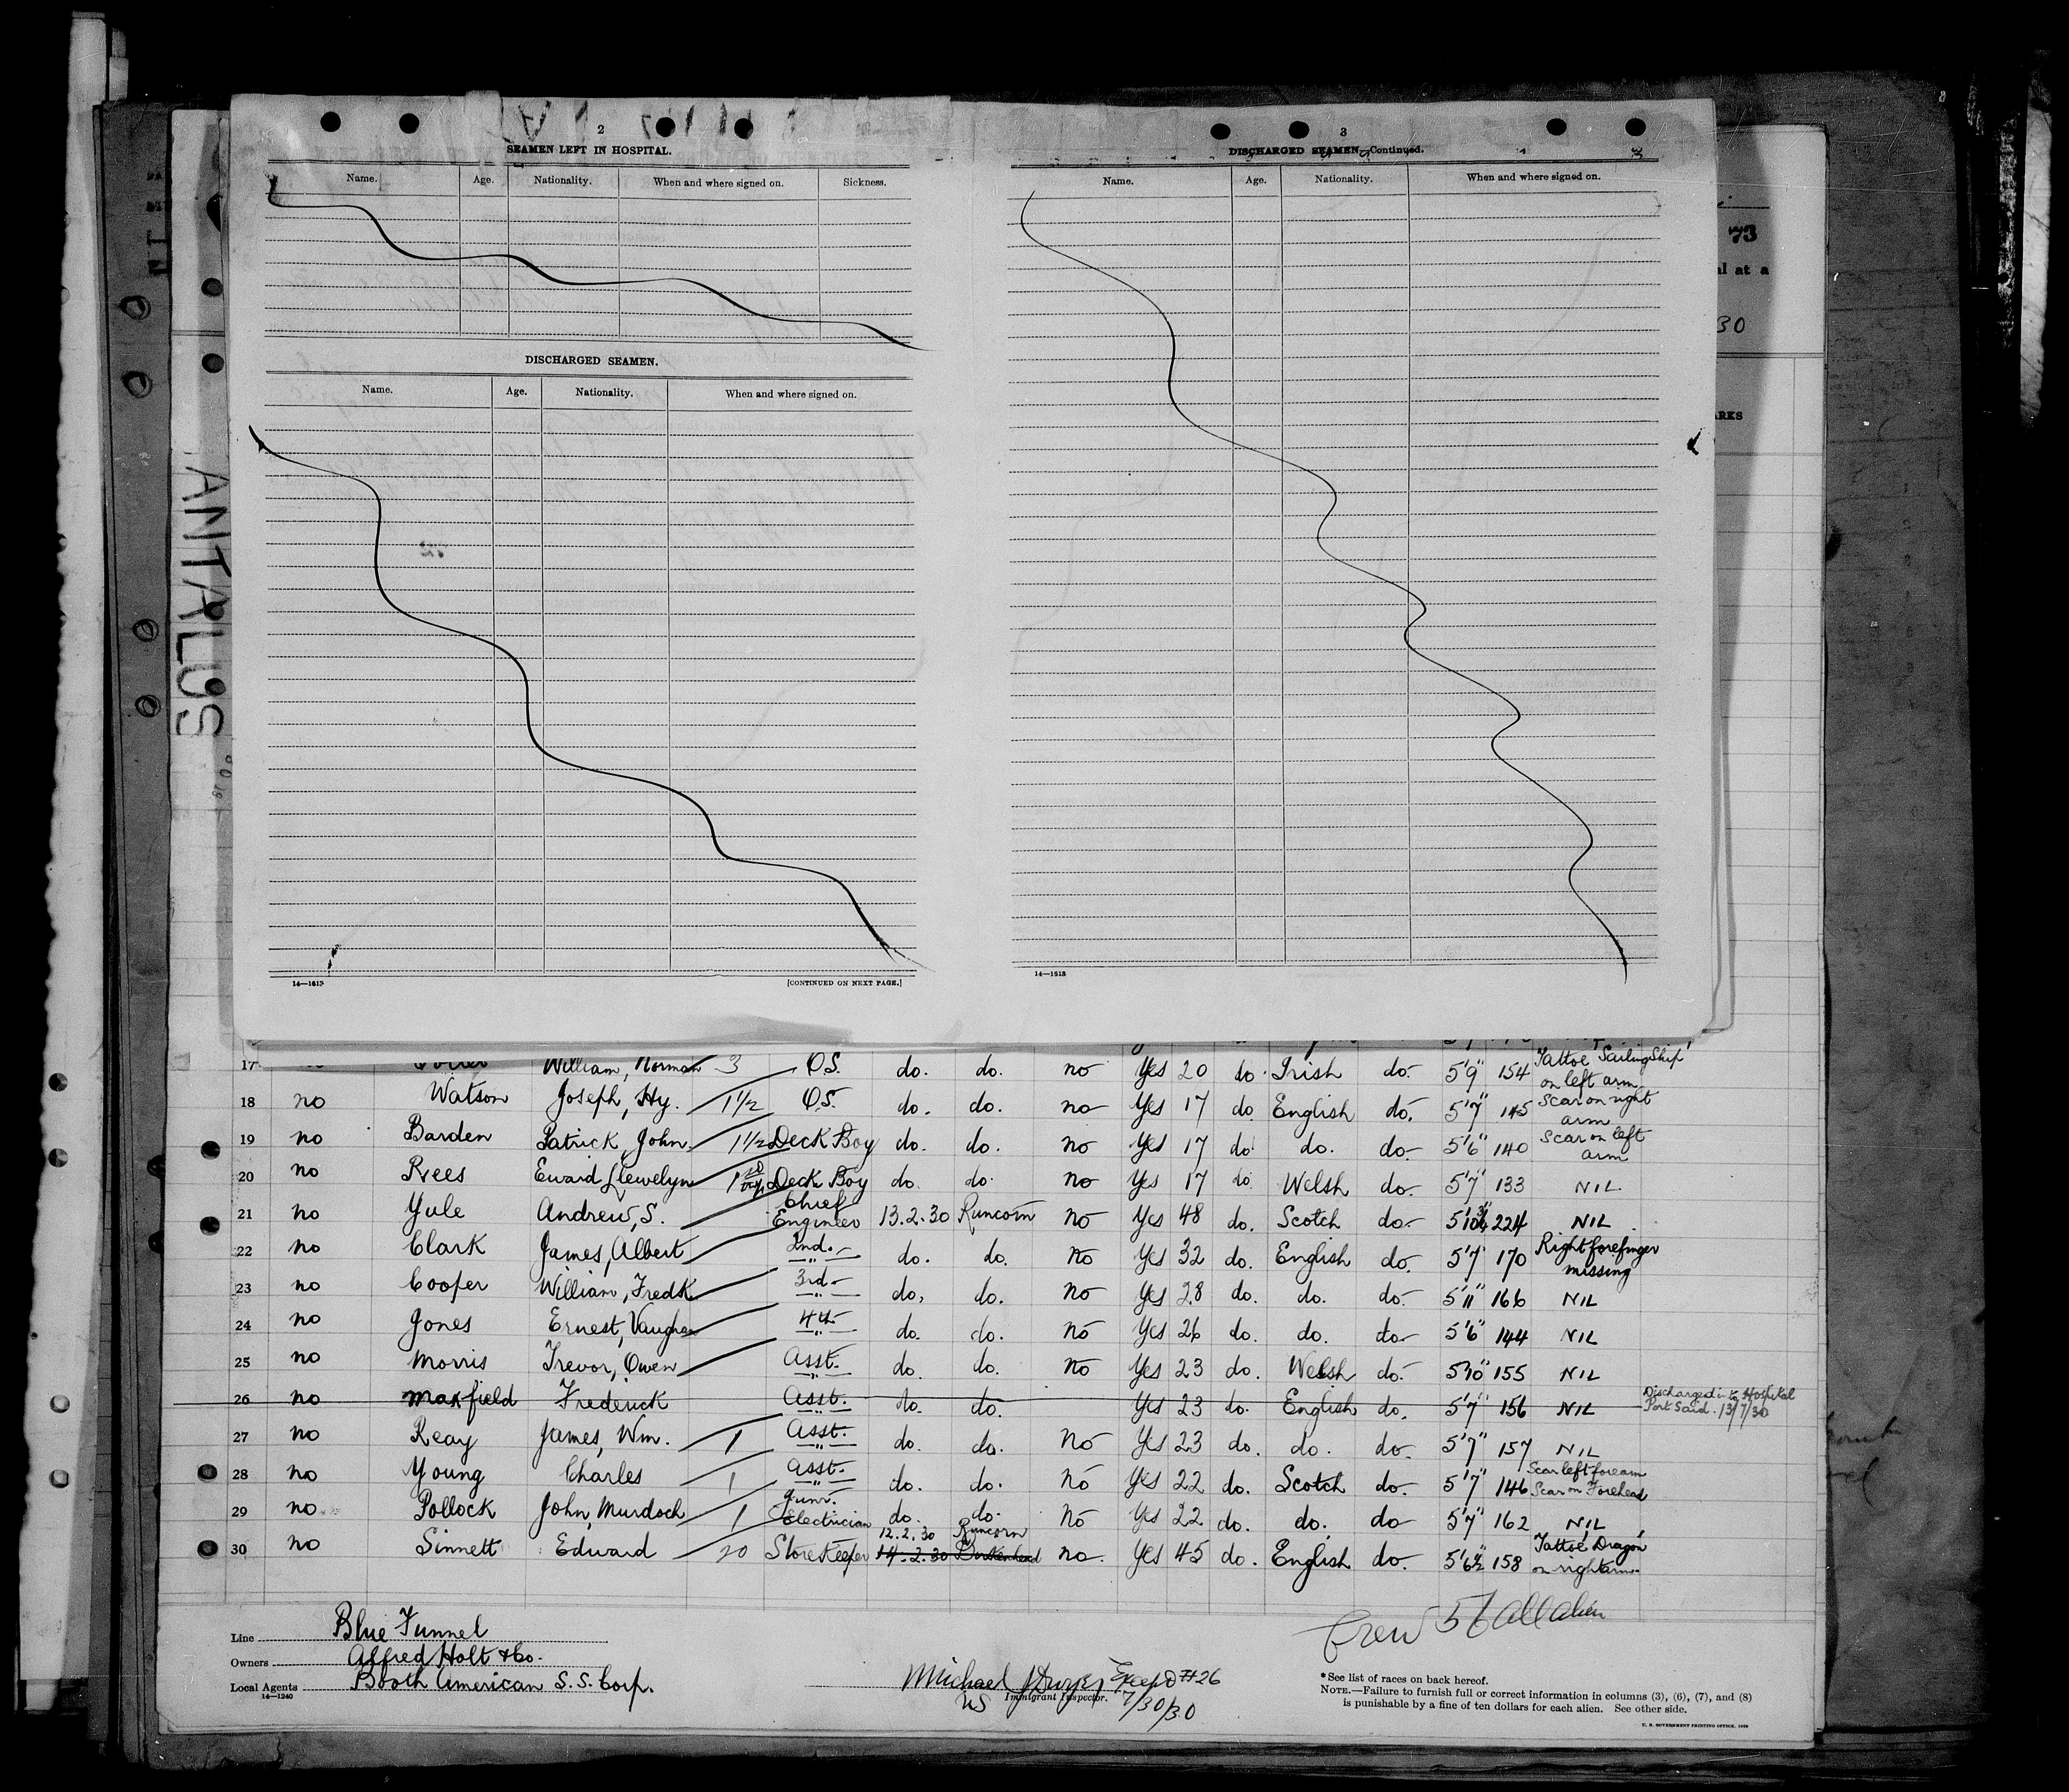 2
SEAMEN LEFT IN HOSPITAL.
Name. Age. Nationality. When and where signed on. Sickness.
DISCHARGED SEAMEN.
Name. Age. Nationality. When and where signed on.
14—1613
[CONTINUED ON NEXT PAGE.]
3
DISCHARGED SEAMEN—Continued.
Name. Age. Nationality. When and where signed on.
14—1613
73
al at a
30
ARKS
ANTALUS
17 William, Norman 3 O.S. do. do. no Yes 20 do. Irish do. 5'9" 154 Tattoe Sailing Ship on left arm
18 no Watson Joseph, Hy. 1 1/2 O.S. do. do. no Yes 17 do English do. 5'7" 145 Scar on right arm
19 no Barden Patrick, John 1 1/2 Deck Boy do. do. no Yes 17 do do. do. 5'6" 140 Scar on left arm
20 no Rees Eward Llewelyn 1st Deck Boy do. do. no Yes 17 do. Welsh do. 5'7" 133 NIL
21 no Yule Andrew, S. Chief Engineer 13.2.30 Runcorn no Yes 48 do. Scotch do. 5'10 3/4" 224 NIL
22 no Clark James, Albert 2nd. -"- do. do. no Yes 32 do. English do. 5'7" 170 Right forefinger missing
23 no Cooper William, Fredk 3rd -"- do. do. no Yes 28 do. do. do. 5'11" 166 NIL
24 no Jones Ernest, Vaughan 4th -"- do. do. no Yes 26 do. do. do 5'6" 144 NIL
25 no Morris Trevor, Owen Asst. -"- do. do. no Yes 23 do. Welsh do. 5'10" 155 NIL
26 no Maxfield Frederick Asst. -"- do. do. Yes 23 do. English do. 5'7" 156 NIL Discharged into Hospital Port Said. 13/7/30
27 no Reay James, Wm. 1 Asst. -"- do. do. no Yes 23 do. do. do. 5'7" 157 NIL
28 no Young Charles 1 Asst. -"- do. do. no Yes 22 do. Scotch do. 5'7" 146 Scar left forearm Scar on Forehead
29 no. Pollock John, Murdoch 1 Junr. Electrician do. do. no Yes 22 do. do. do 5'7" 162 NIL
30 no Sinnett Edward 20 StoreKeeper 12.2.30 Runcorn 14.2.30 Birkenhead no. Yes 45 do. English do. 5'6 1/2" 158 Tattoe Dragon on right arm.
Line Blue Funnel
Owners Alfred Holt & Co.
Local Agents Booth American S.S. Corp.
14—1240
Michael J Dwyer Except #26
US Immigrant Inspector. 7/30/30
Crew 57 all alien
*See list of races on back hereof.
NOTE.—Failure to furnish full or correct information in columns (3), (6), (7), and (8)
is punishable by a fine of ten dollars for each alien. See other side.
U. S. GOVERNMENT PRINTING OFFICE: 1929